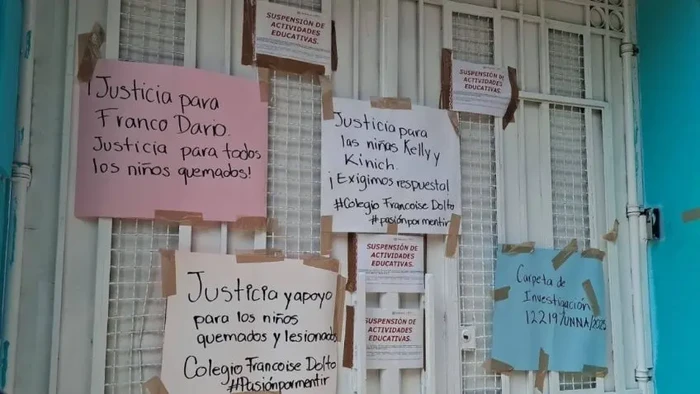 SUSPENSIÓN DE
ACTIVIDADES
EDUCATIVAS.
SUSPENSIÓN DE
ACTIVIDADES
EDUCATIVAS.
¡Justicia para
Franco Dario.
Justicia para todos
los niños quemados!
Justicia para
las niñas Kelly y
Kinich.
¡Exigimos respuesta!
#Colegio Francoise Dolto
#pasiónpormentir
SUSPENSIÓN DE
ACTIVIDADES
EDUCATIVAS.
SUSPENSIÓN DE
ACTIVIDADES
EDUCATIVAS.
Justicia y apoyo
para los niños
quemados y lesionados
Colegio Francoise Dolto
#Pasiónpormentir
Carpeta de
Investigación